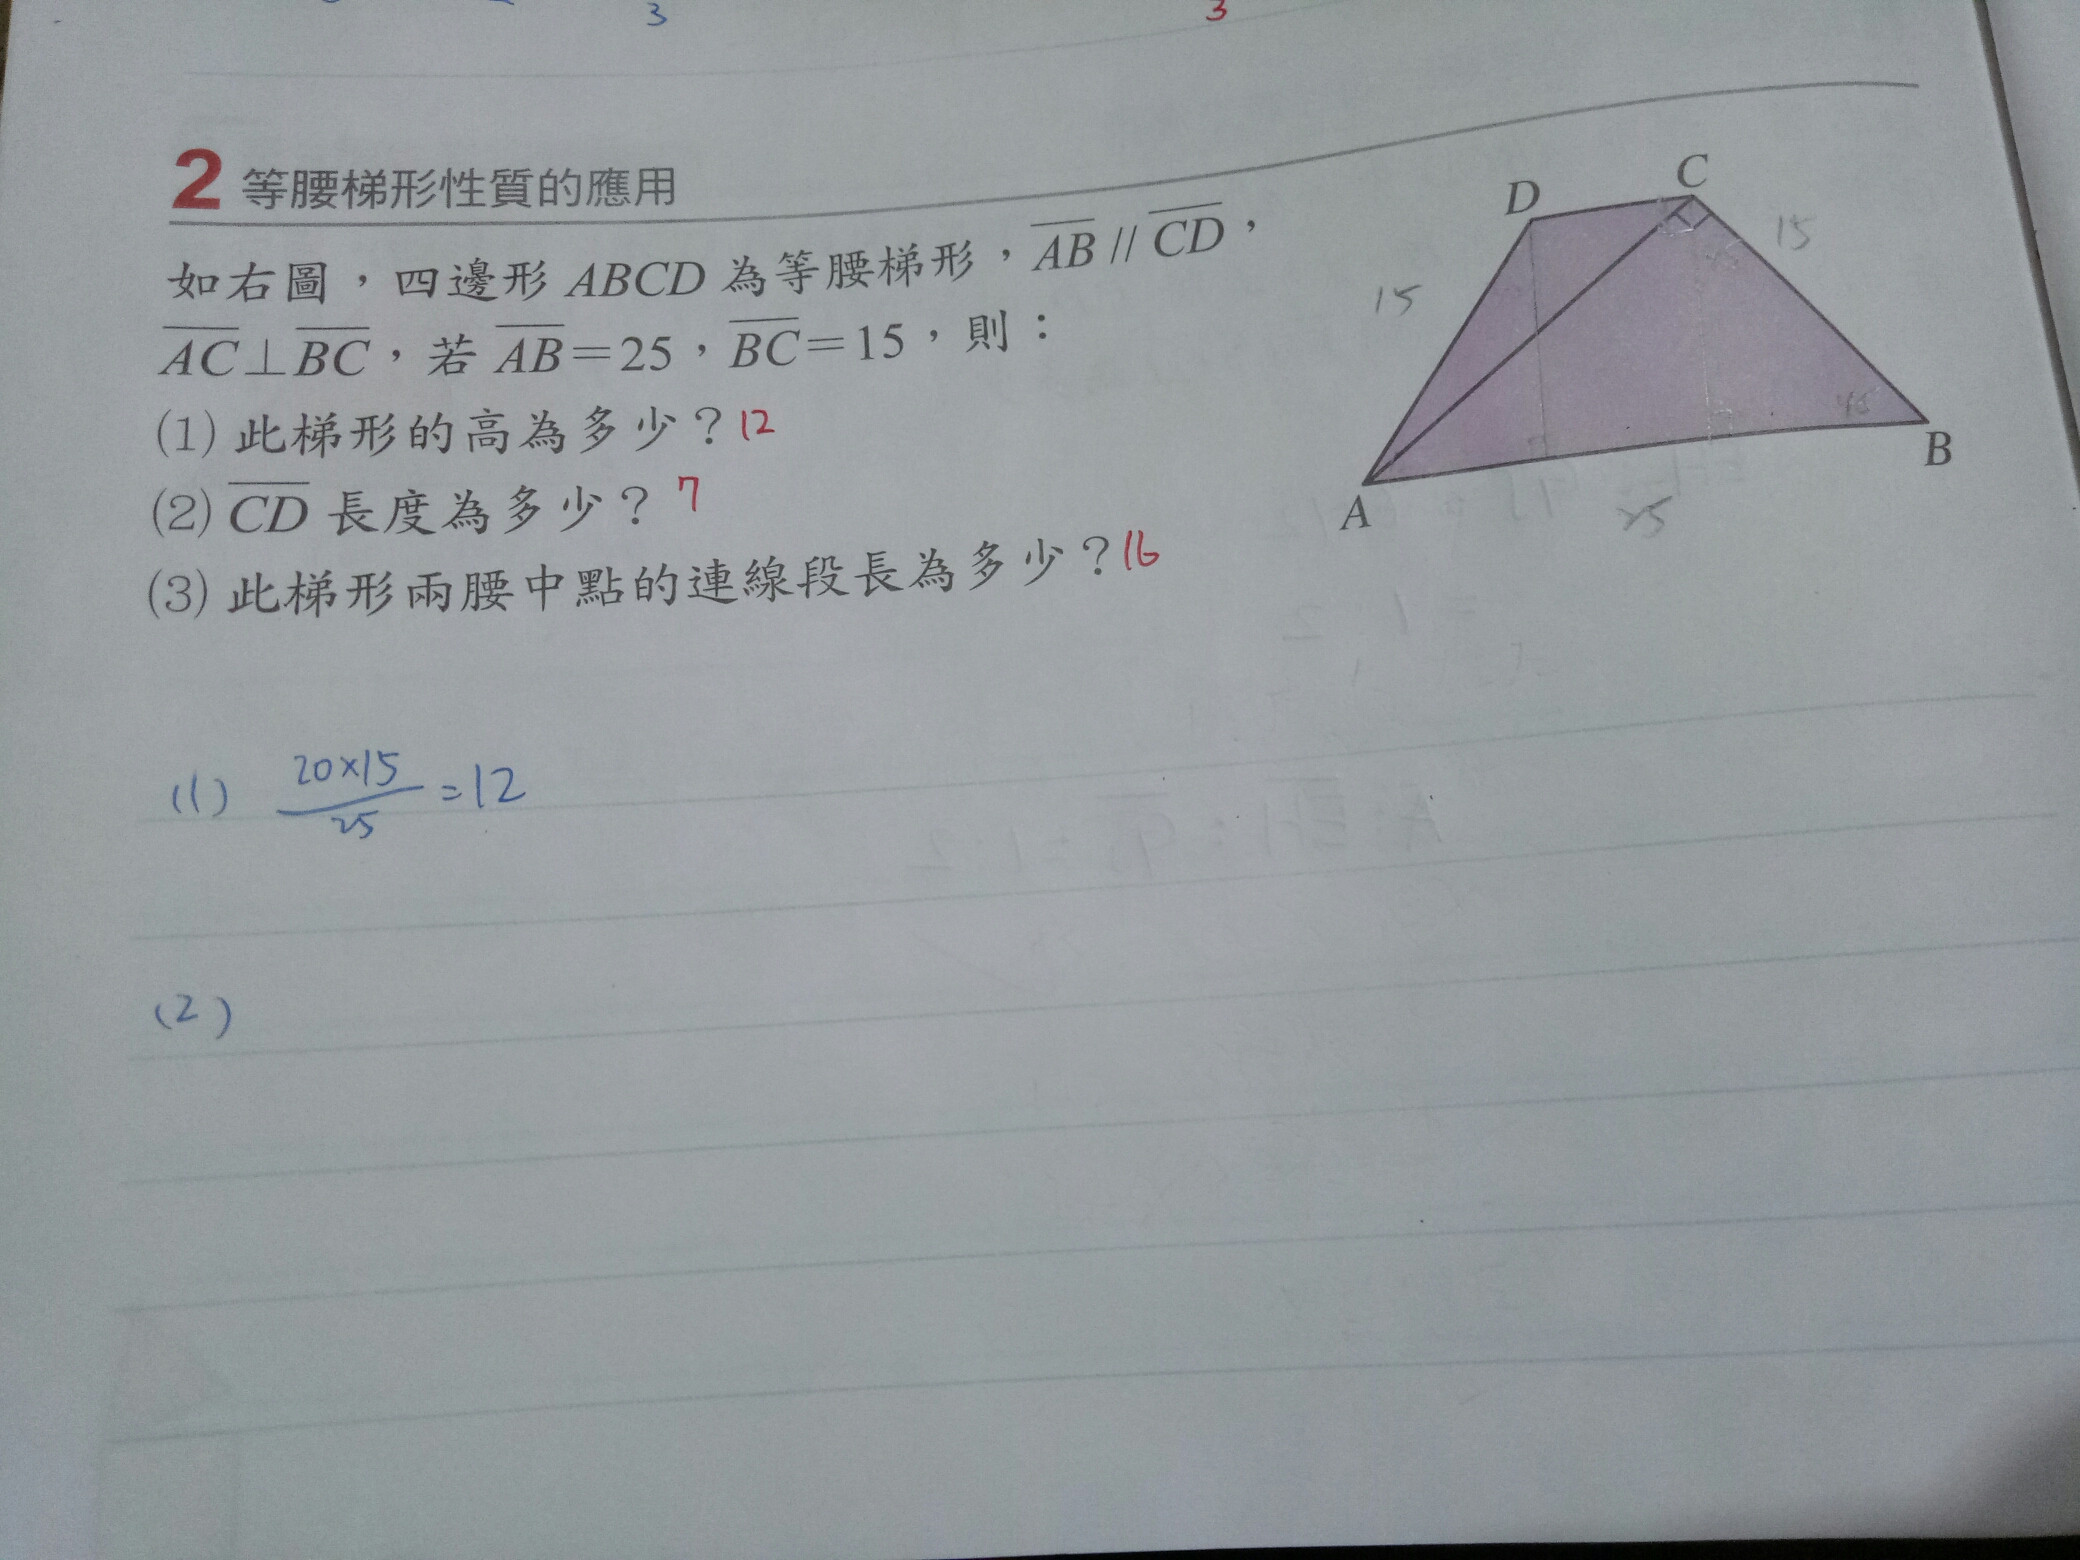 3 3
2 等腰梯形性質的應用
如右圖，四邊形 ABCD 為等腰梯形，AB // CD，
AC⊥BC，若 AB=25，BC=15，則：
(1) 此梯形的高為多少？12
(2) CD 長度為多少？7
(3) 此梯形兩腰中點的連線段長為多少？16
D C
15 15
45
A B
25
(1) 20×15/25=12
(2)